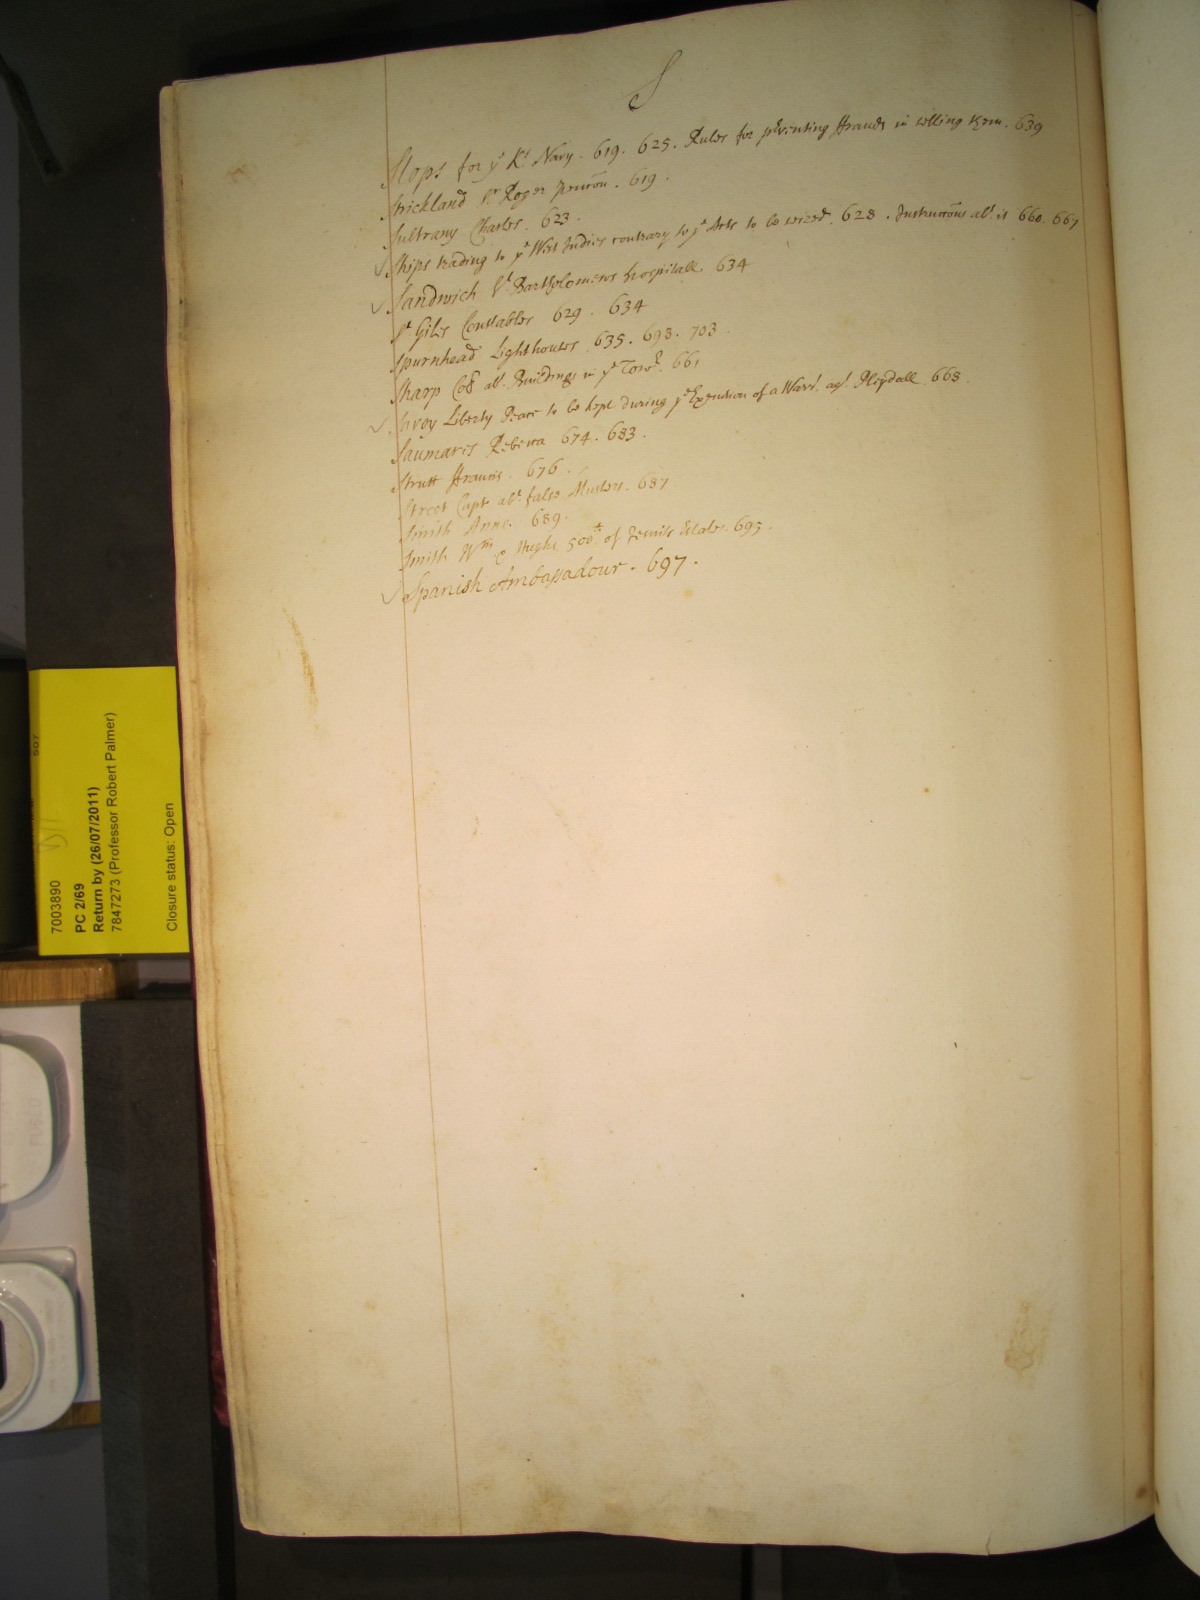 S
Slops for yͤ Kˢ Navy . 619 . 625 . Rules for pʳventing ffrauds in selling them . 639
Strickland Sʳ Roger peticōn . 619 .
Sultrany Charles . 623 .
Ships trading to yͤ West Indies contrary to yͤ Acts to be seized . 628 . Instruccōns abᵗ it 660 . 667
Sandwich Sᵗ Bartholomews hospitall 634
Sᵗ Giles Constables 629 . 634
Spurnhead Lighthouses 635 . 693 . 703 .
Sharp Coll abᵗ Buildings in yͤ Towʳ . 661
Savoy Liberty Peace to be kept during yͤ Execution of a Warrᵗ agᵗ Pleydall 668 .
Saumares Rebecca 674 . 683 .
Strutt ffrancis . 676 .
Street Capt abᵗ false Musters . 687
Smith Anne . 689 .
Smith Wᵐ & Hughs 500ˡ of Estate . 695 .
Spanish Ambassadour . 697 .
7003890
PC 2/69
Return by (26/07/2011)
7847273 (Professor Robert Palmer)
Closure status: Open